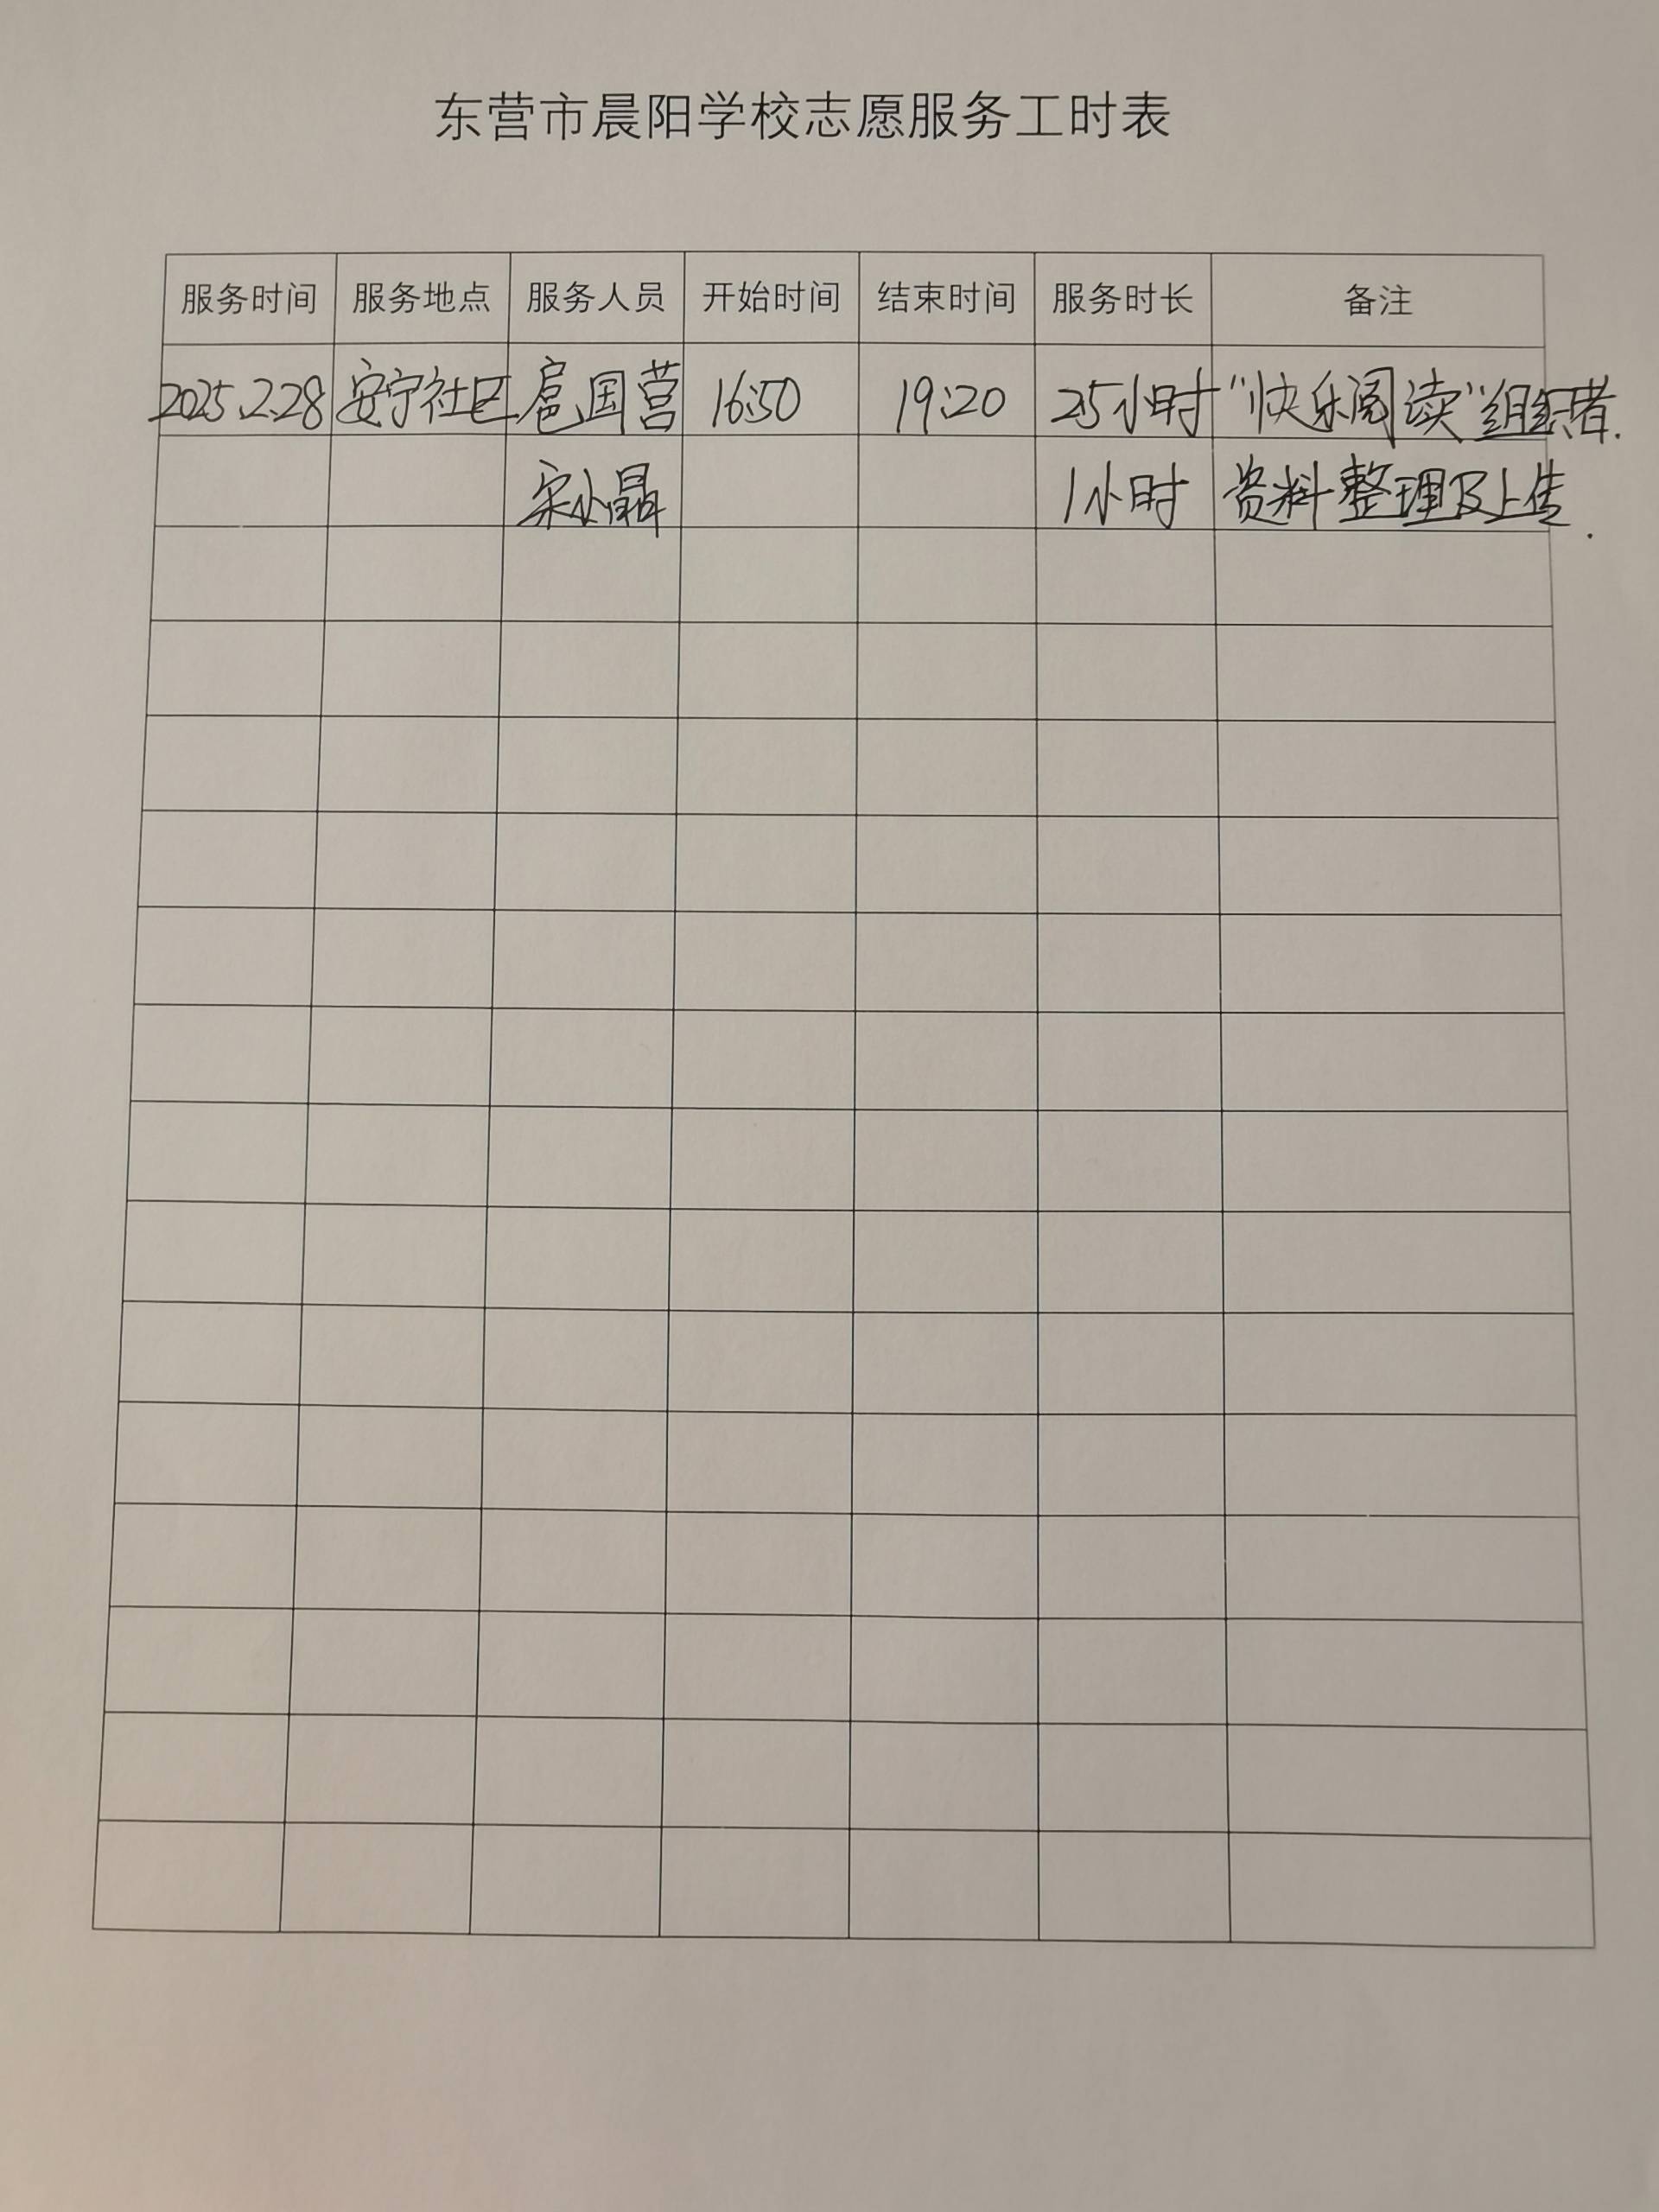 东营市晨阳学校志愿服务工时表
服务时间 服务地点 服务人员 开始时间 结束时间 服务时长 备注
2025.2.28 安宁社区 扈国营 16:50 19:20 2.5小时 "快乐阅读"组织者.
宋小晶 1小时 资料整理及上传.